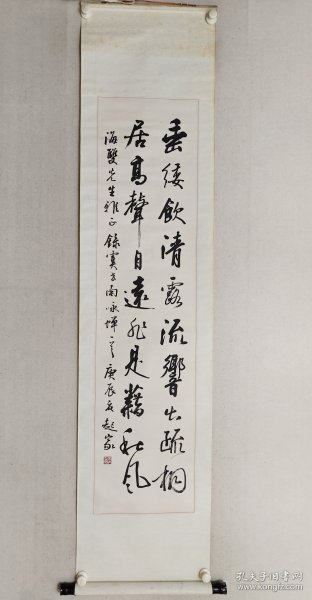 垂緌飲清露流響出疏桐
居高聲自遠非是藉秋風
海雙先生雅正 錄虞世南咏蟬 庚辰 超家
孔夫子旧书网